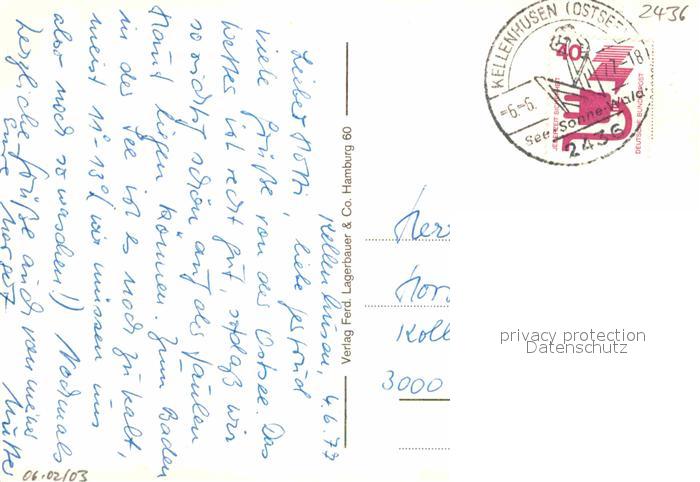 Kellenhusen, 4.6.73
Lieber Motti, liebe Gertrud
viele Grüße von der Ostsee. Das
Wetter ist recht gut, sodaß wir
so richtig schön auf der faulen
Haut liegen können. Zum Baden
in der See ist es noch zu kalt,
meist 11°-13° (wir müssen uns
also noch so waschen!) Nochmals
herzliche Grüße auch von meiner
Mutter
Eure Margret
06.02/03
Verlag Ferd. Lagerbauer & Co. Hamburg 60
2436
KELLENHUSEN (OSTSEE
-6.-6.
17-18
See-Sonne-Wald.
2436
40
JEDERZEIT SICHERHEIT
DEUTSCHE BUNDESPOST
Herr
Hors
Koll
3000
privacy protection
Datenschutz